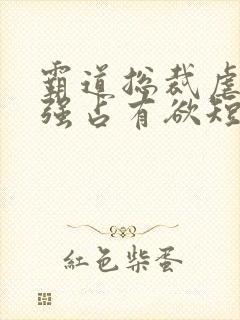 霸道总裁虐
强占有欲短
红色柴蛋